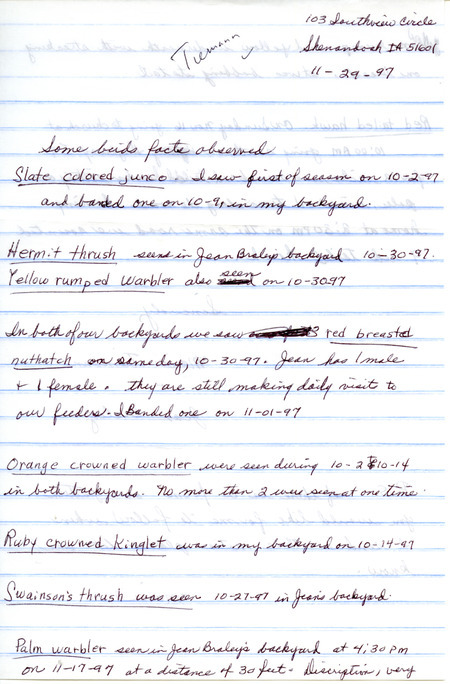 103 Southview Circle
Tiemann
Shenandoah IA 51601
11-29-97
Some birds facts observed
Slate colored junco. I saw first of season on 10-2-97
and banded one on 10-9, in my backyard.
Hermit thrush seen in Jean Braley's backyard 10-30-97.
Yellow rumped Warbler also seen on 10-30-97
In both of our backyards we saw 3 red breasted
nuthatch on same day, 10-30-97. Jean has 1 male
+ 1 female. they are still making daily visit to
our feeders. I Banded one on 11-01-97
Orange crowned warbler were seen during 10-2 10-14
in both backyards. No more then 2 were seen at one time.
Ruby crowned Kinglet was in my backyard on 10-14-97
Swainson's thrush was seen 10-27-97 in Jean's backyard.
Palm warbler seen in Jean Braley's backyard at 4;30 pm
on 11-17-97 at a distance of 30 feet. Discription, very